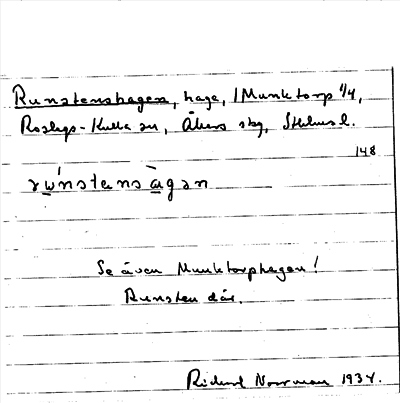 Runstenshagen, hage, i Munktorp 1/4,
Roslags-Kulla sn, Åkers skg, Sthlms l.
148
Se även Munktorphagen!
Runsten där.
Richard Norrman 1934.